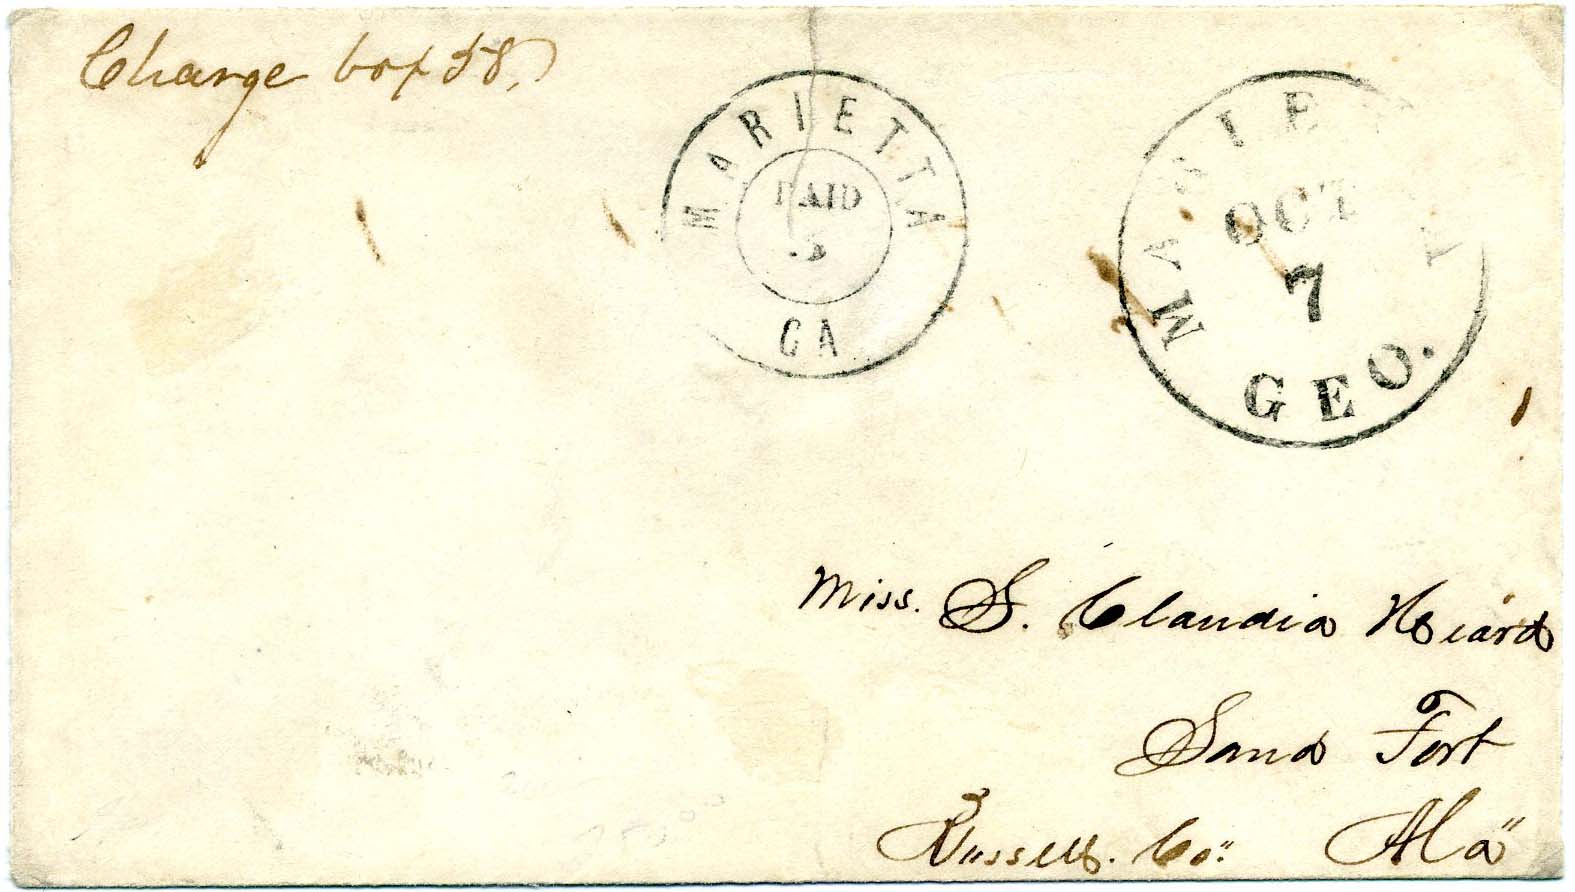 Charge box 58.
MARIETTA
PAID
5
GA
MARIETTA
OCT
7
GEO.
Miss. S. Claudia Heard
Sand Fort
Russell. Co. Ala